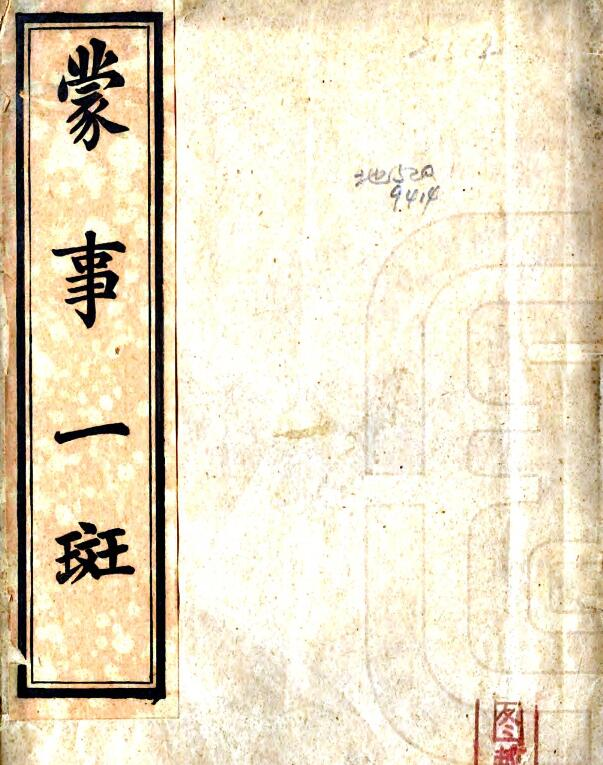 蒙事一斑
地152
9414